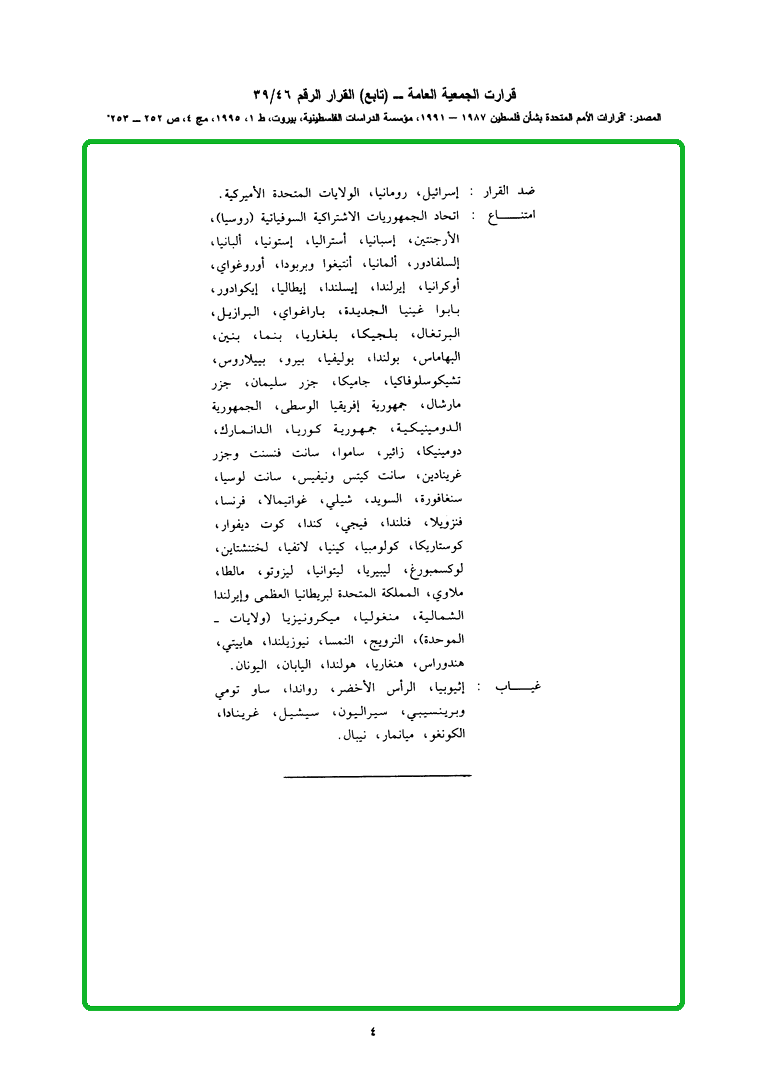 قرارت الجمعية العامة ــ (تابع) القرار الرقم ٣٩/٤٦
المصدر: "قرارات الأمم المتحدة بشأن فلسطين ١٩٨٧ – ١٩٩١، مؤسسة الدراسات الفلسطينية، بيروت، ط ١، ١٩٩٥، مج ٤، ص ٢٥٢ ــ ٢٥٣"
ضد القرار : إسرائيل، رومانيا، الولايات المتحدة الأميركية.
امتنـــــاع : اتحاد الجمهوريات الاشتراكية السوفياتية (روسيا)،
الأرجنتين، إسبانيا، أستراليا، إستونيا، ألبانيا،
إلسلفادور، ألمانيا، أنتيغوا وبربودا، أوروغواي،
أوكرانيا، إيرلندا، إيسلندا، إيطاليا، إيكوادور،
بابوا غينيا الجديدة، باراغواي، البرازيل،
البرتغال، بلجيكا، بلغاريا، بنما، بنين،
البهاماس، بولندا، بوليفيا، بيرو، بييلاروس،
تشيكوسلوفاكيا، جاميكا، جزر سليمان، جزر
مارشال، جمهورية إفريقيا الوسطى، الجمهورية
الدومينيكية، جمهورية كوريا، الدانمارك،
دومينيكا، زائير، ساموا، سانت فنسنت وجزر
غرينادين، سانت كيتس ونيفيس، سانت لوسيا،
سنغافورة، السويد، شيلي، غواتيمالا، فرنسا،
فنزويلا، فنلندا، فيجي، كندا، كوت ديفوار،
كوستاريكا، كولومبيا، كينيا، لاتفيا، لختنشتاين،
لوكسمبورغ، ليبيريا، ليثوانيا، ليزوتو، مالطا،
ملاوي، المملكة المتحدة لبريطانيا العظمى وإيرلندا
الشمالية، منغوليا، ميكرونيزيا (ولايات ـ
الموحدة)، النرويج، النمسا، نيوزيلندا، هاييتي،
هندوراس، هنغاريا، هولندا، اليابان، اليونان.
غيـــــاب : إثيوبيا، الرأس الأخضر، رواندا، ساو تومي
وبرينسيبي، سيراليون، سيشيل، غرينادا،
الكونغو، ميانمار، نيبال.
٤